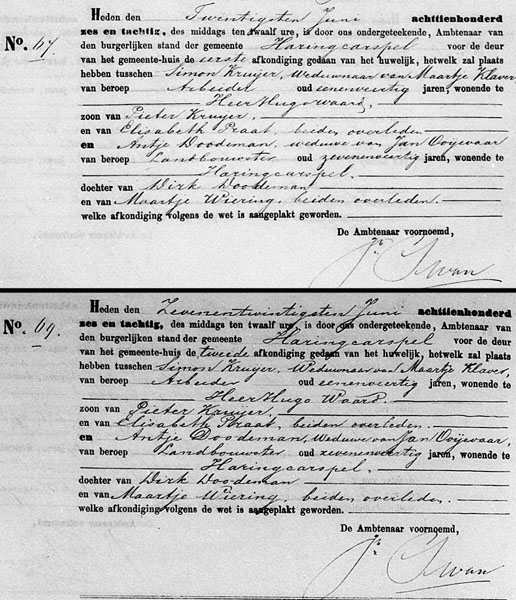 Heden den Twintigsten Juni achttienhonderd
No. 67. zes en tachtig, des middags ten twaalf ure, is door ons ondergeteekende, Ambtenaar van
den burgerlijken stand der gemeente Haringcarspel voor de deur
van het gemeente-huis de eerste afkondiging gedaan van het huwelijk, hetwelk zal plaats
hebben tusschen Simon Kruijer, Weduwnaar van Maartje Klaver
van beroep Arbeider oud eenenveertig jaren, wonende te
Heer Hugowaard,
zoon van Pieter Kruijer,
en van Elisabeth Praat, beiden overleden.
en Antje Doodeman, weduwe van Jan Ooijevaar
van beroep Landbouwster oud zevenenveertig jaren, wonende te
Haringcarspel.
dochter van Dirk Doodeman
en van Maartje Wiering, beiden overleden.
welke afkondiging volgens de wet is aangeplakt geworden.
De Ambtenaar voornoemd,
Jn. Swan
Heden den Zevenentwintigsten Juni achttienhonderd
No. 69. zes en tachtig, des middags ten twaalf ure, is door ons ondergeteekende, Ambtenaar van
den burgerlijken stand der gemeente Haringcarspel voor de deur
van het gemeente-huis de tweede afkondiging gedaan van het huwelijk, hetwelk zal plaats
hebben tusschen Simon Kruijer, Weduwnaar van Maartje Klaver,
van beroep Arbeider oud eenenveertig jaren, wonende te
Heer Hugo Waard.
zoon van Pieter Kruijer,
en van Elisabeth Praat, beiden overleden.
en Antje Doodeman, Weduwe van Jan Ooijevaar,
van beroep Landbouwster oud zevenenveertig jaren, wonende te
Haringcarspel.
dochter van Dirk Doodeman
en van Maartje Wiering, beiden overleden.
welke afkondiging volgens de wet is aangeplakt geworden.
De Ambtenaar voornoemd,
Jn. Swan